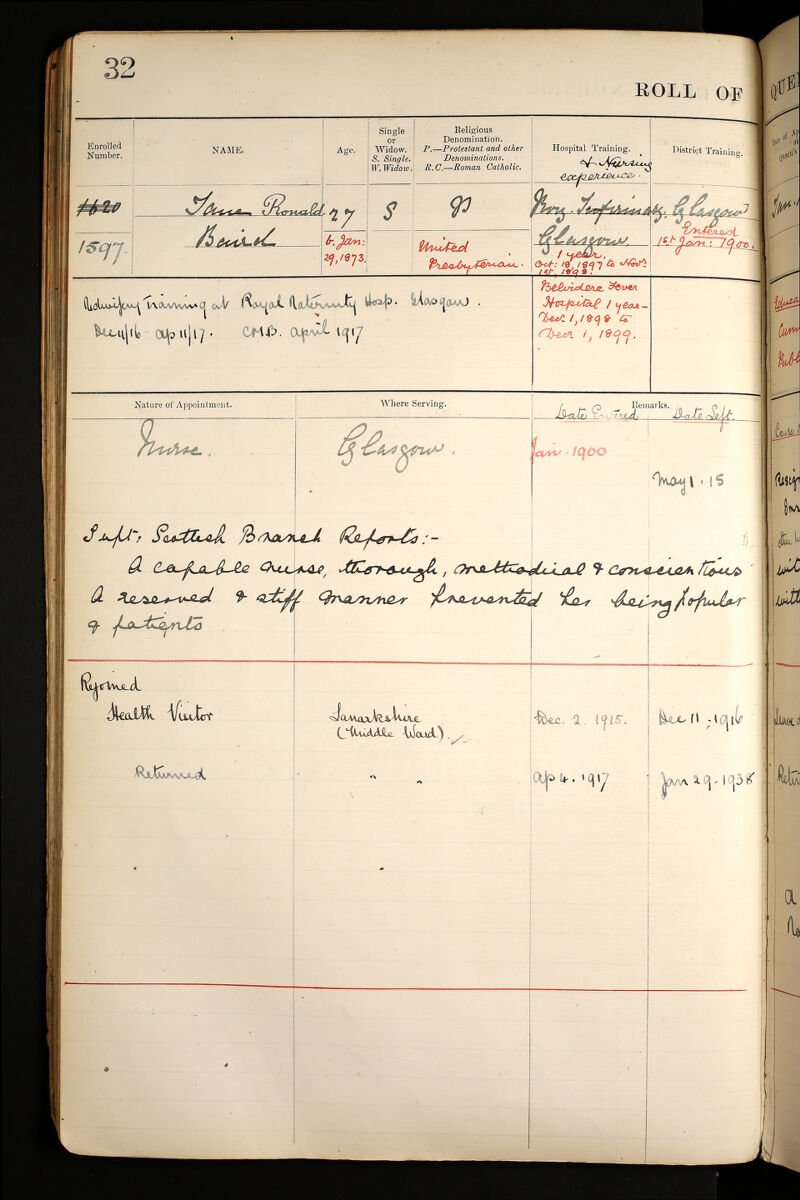 32
ROLL OF
Enrolled Number.
NAME.
Age.
Single or Widow.
S. Single.
W. Widow.
Religious Denomination.
P.—Protestant and other Denominations.
R.C.—Roman Catholic.
Hospital Training.
& Nursing experience.
District Training.
1620
1597.
Jane Ronald
Baird
27
b. Jan:
29, 1873.
S
P
United
Presbyterian.
Roy. Infirmary.
Glasgow.
1 year.
Oct: 18, 1897 to Novr.
1st, 1898.
Glasgow
Entered
1st Jan: 1900.
Midwifery Training at Royal Maternity Hosp. Glasgow.
Dec 11/16 - Ap 11/17. CMB. April 1917
Belvidere Fever
Hospital 1 year -
Decr. 1, 1898 to
Decr. 1, 1899.
Nature of Appointment.
Where Serving.
Remarks.
Date Entered
Date Left.
Nurse.
Glasgow.
Jan. 1900
May 1. 15
Supt: Scottish Branch Reports:-
A capable nurse, thorough, methodical & conscientious
A reserved & stiff manner prevented her being popular
& patients
Rejoined
Health Visitor
Lanarkshire
(Middle Ward).
Dec. 2. 1915.
Dec 11. 1916
Returned
" "
Ap 4. 1917
Jan 29. 1938